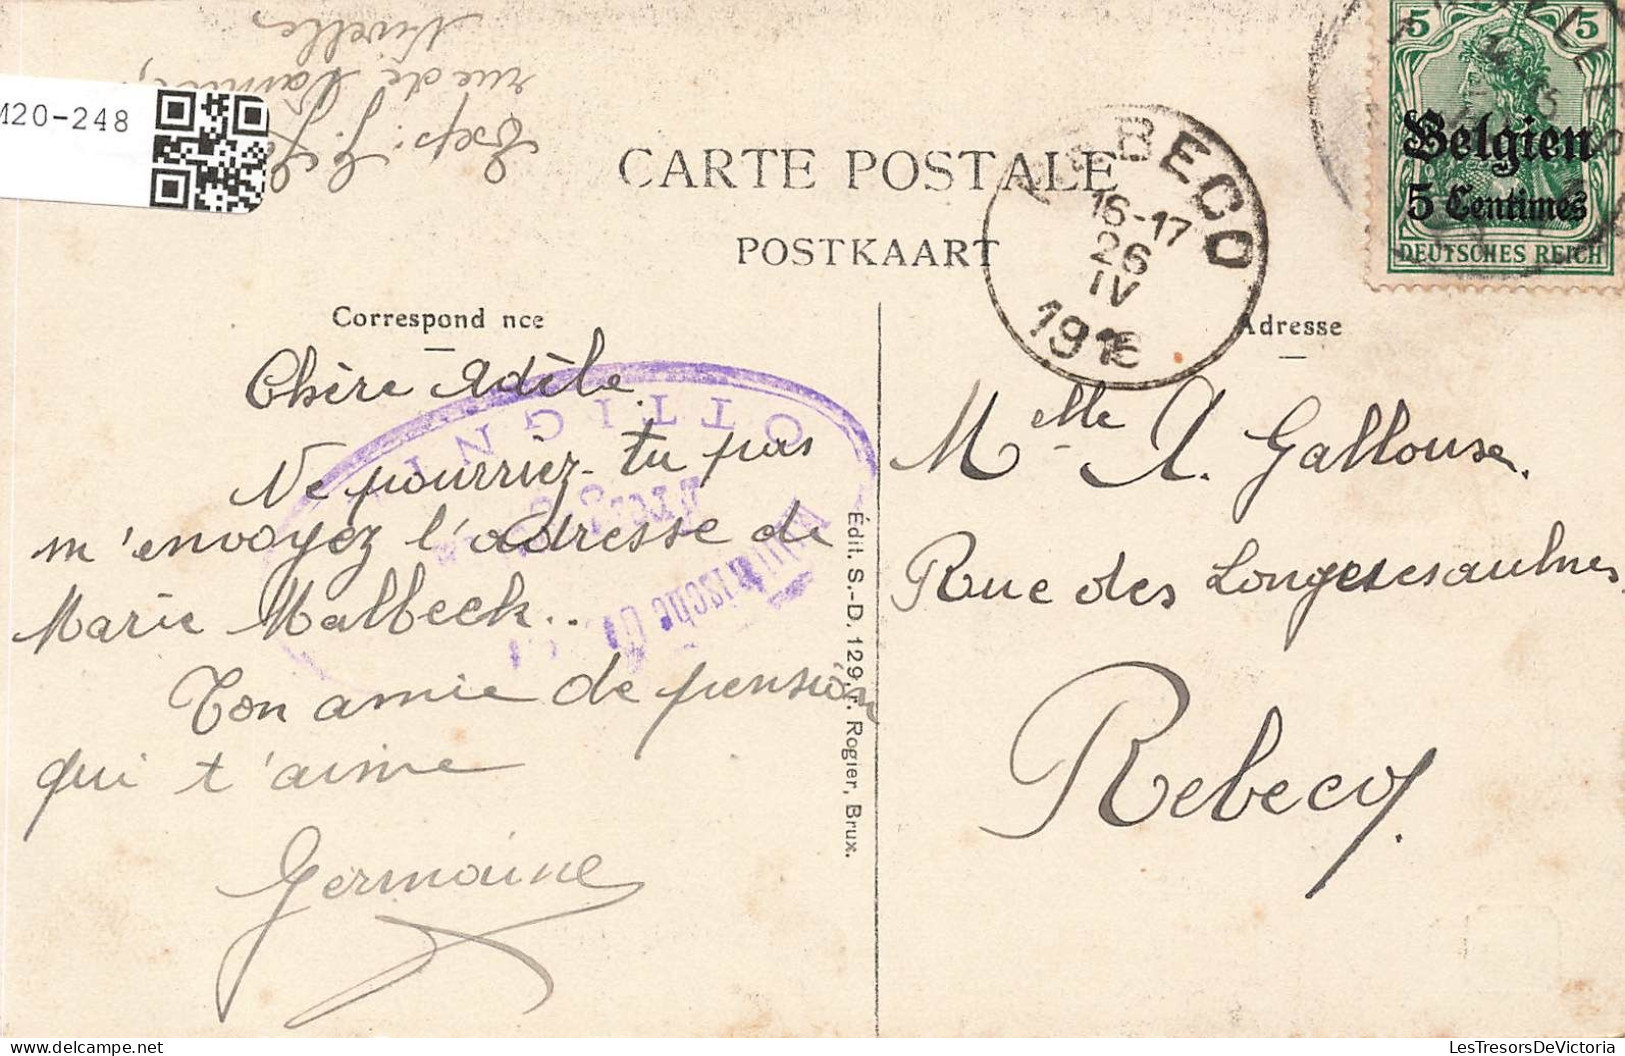 M20-248
Nivelles
rue de
Exp: J.
CARTE POSTALE
POSTKAART
REBECQ
16-17
26
IV
1916
5 5
Belgien
5 Centimes
DEUTSCHES REICH
Correspond nce
Adresse
Chère Adèle.
Ne pourriez-tu pas
m'envoyez l'adresse de
Marie Malbeck..
Ton amie de pension
qui t'aime
Germaine
OTTIGNI
Édit. S.-D. 129, r. Rogier, Brux.
Melle A. Gallouse.
Rue des
Rebecq.
LesTresorsDeVictoria.com